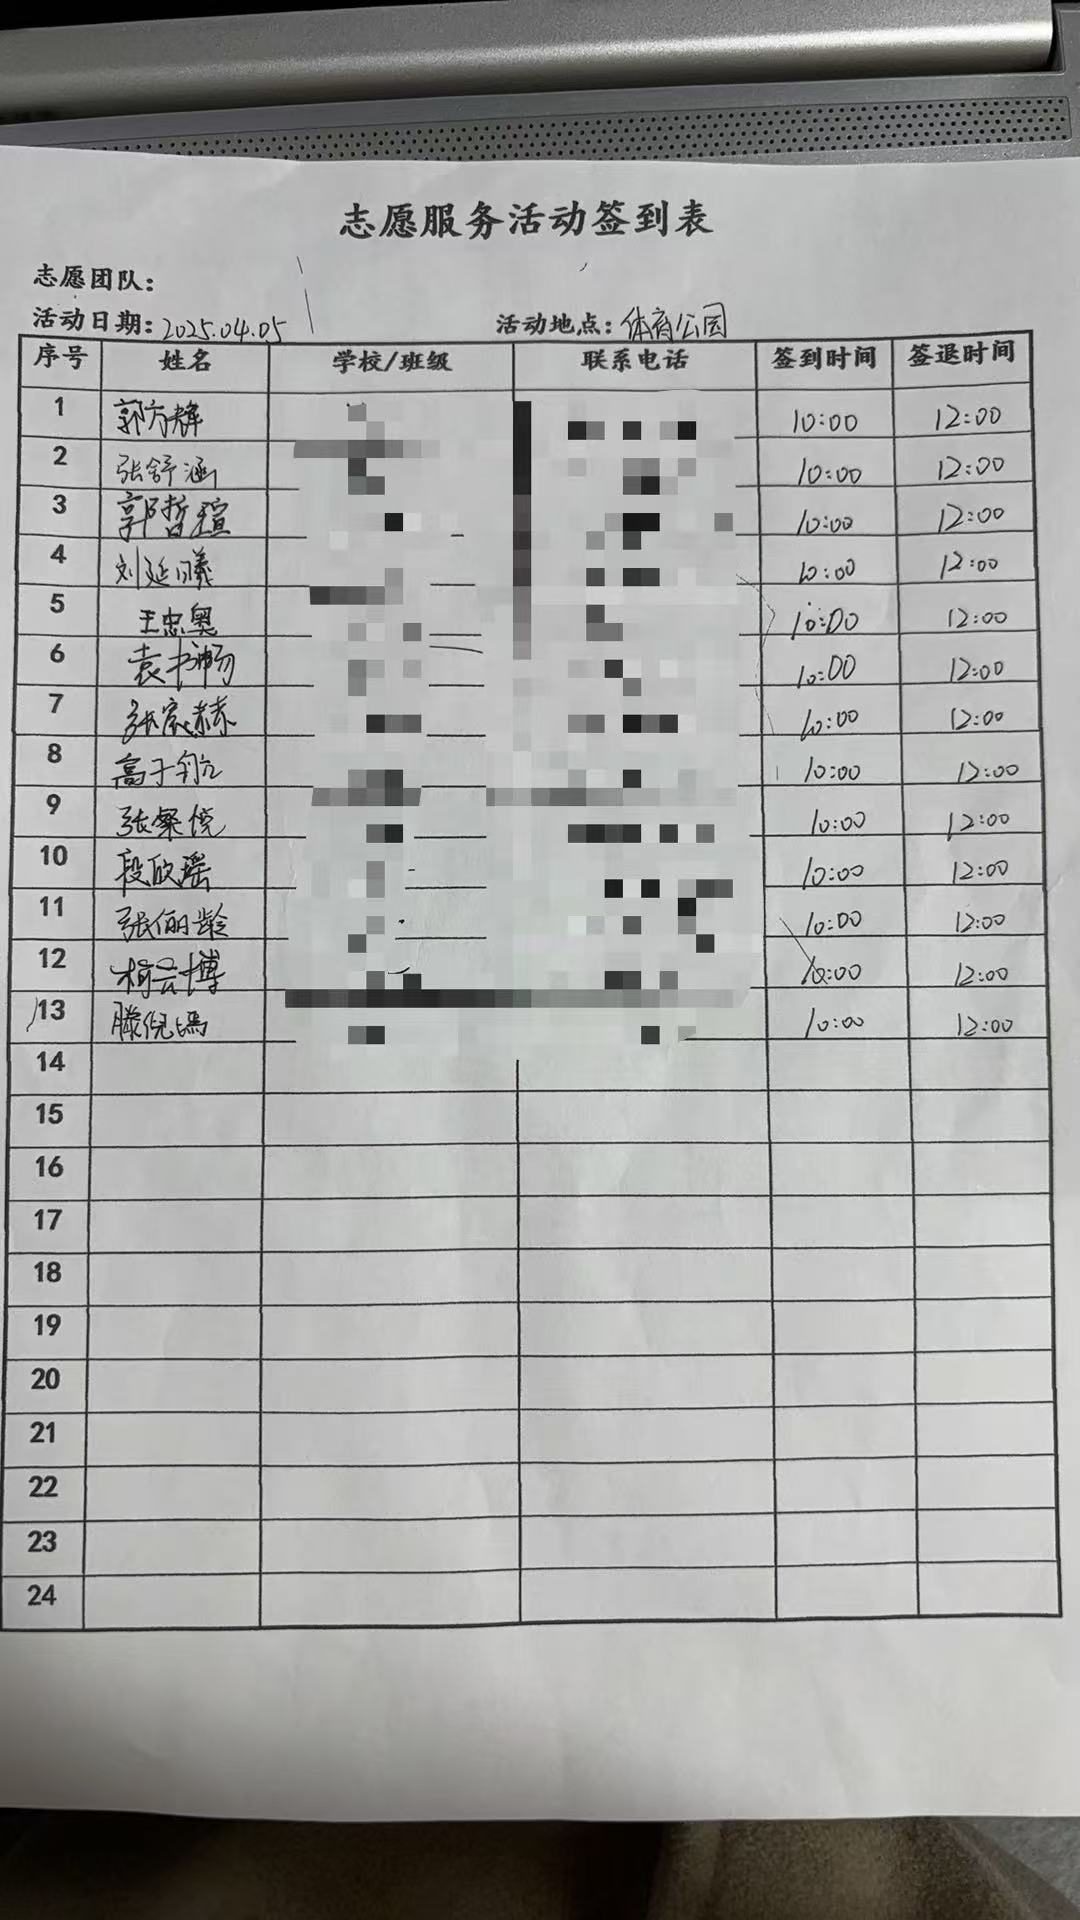 志愿服务活动签到表
志愿团队：
活动日期：2025.04.05 活动地点：体育公园
序号 姓名 学校/班级 联系电话 签到时间 签退时间
1 郭方辉 10:00 12:00
2 张舒涵 10:00 12:00
3 郭哲瑄 10:00 12:00
4 刘延曦 10:00 12:00
5 王忠奥 10:00 12:00
6 袁书畅 10:00 12:00
7 张宸赫 10:00 12:00
8 高于航 10:00 12:00
9 张粲悦 10:00 12:00
10 段欣瑶 10:00 12:00
11 张俪龄 10:00 12:00
12 10:00 12:00
13 10:00 12:00
14
15
16
17
18
19
20
21
22
23
24